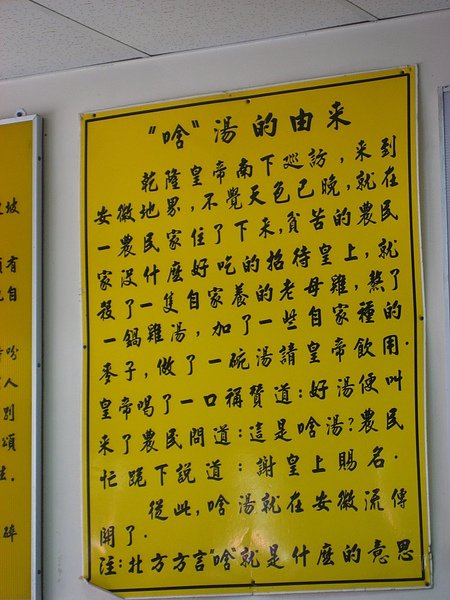 坡
有
自
吩
人
别
頌
碎
"啥"湯的由来
乾隆皇帝南下巡訪，来到
安徽地界，不覺天色已晚，就在
一農民家住了下来，貧苦的農民
家没什麽好吃的招待皇上，就
殺了一隻自家養的老母雞，熬了
一鍋雞湯，加了一些自家種的
麥子，做了一碗湯請皇帝飲用.
皇帝喝了一口稱贊道：好湯便叫
来了農民問道：這是啥湯？農民
忙跪下説道：謝皇上賜名.
從此，啥湯就在安徽流傳
開了.
注：北方方言"啥"就是什麽的意思